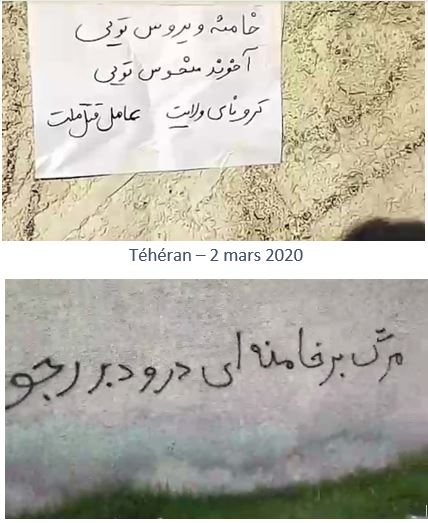 خامنه ویروس تویی
آخوند منحوس تویی
کرونای ولایت عامل قتل ملت
Téhéran – 2 mars 2020
مرگ بر خامنه ای درود بر رجو